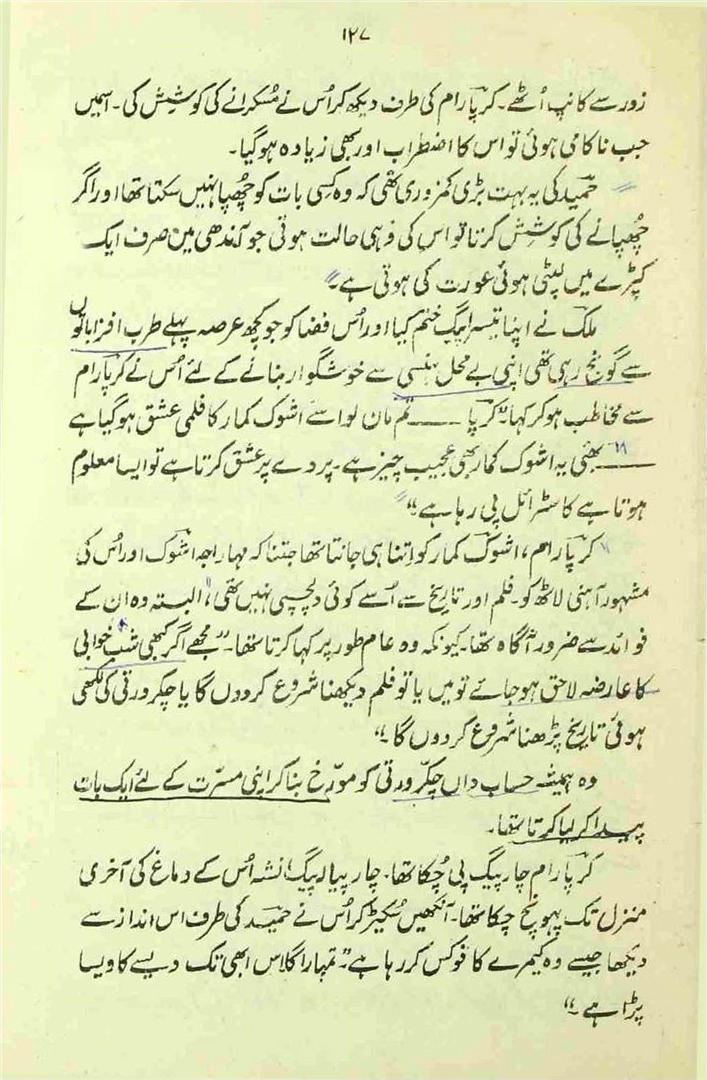 ۱۲۷
زور سے کانپ اُٹھے۔ کرپا رام کی طرف دیکھ کر اُس نے مُسکرانے کی کوشِش کی۔ اسمیں
جب ناکامی ہوئی تو اس کا اضطراب اور بھی زیادہ ہو گیا۔
حمید کی یہ بہت بڑی کمزوری تھی کہ وہ کِسی بات کو چُھپا نہیں سکتا تھا اور اگر
چُھپانے کی کوشِش کرتا تو اس کی وہی حالت ہوتی جو آندھی میں صرف ایک
کپڑے میں لپٹی ہوئی عورت کی ہوتی ہے۔
ملک نے اپنا تیسرا پیگ ختم کیا اور اُس فضا کو جو کچھ عرصہ پہلے طرب افزا باتوں
سے گونج رہی تھی اپنی بے محل ہنسی سے خوشگوار بنانے کے لئے اُس نے کرپا رام
سے مخاطب ہو کر کہا۔ "کرپا ــــ تم مان لو اسے اشوک کمار کا فلمی عشق ہو گیا ہے
ــــ بھئی یہ اشوک کمار بھی عجیب چیز ہے۔ پردے پر عشق کرتا ہے تو ایسا معلوم
ہوتا ہے کاسٹرائل پی رہا ہے۔"
کرپا رام، اشوک کمار کو اِتنا ہی جانتا تھا جتنا کہ مہاراجہ اشوک اور اُس کی
مشہور آہنی لاٹھ کو۔ فلم اور تاریخ سے اُسے کوئی دلچسپی نہیں تھی، البتہ وہ ان کے
فوائد سے ضرور آگاہ تھا۔ کیونکہ وہ عام طور پر کہا کرتا تھا۔ "مجھے اگر کبھی شب خوابی
کا عارضہ لاحق ہو جائے تو میں یا تو فلم دیکھنا شروع کردوں گا یا چکرورتی کی لکھی
ہوئی تاریخ پڑھنا شروع کردوں گا۔"
وہ ہمیشہ حساب داں چکرورتی کو مورّخ بنا کر اپنی مسرّت کے لئے ایک بات
پیدا کر لیا کرتا تھا۔
کرپا رام چار پیگ پی چُکا تھا۔ چار پیالہ پیگ، نشہ اُس کے دماغ کی آخری
منزل تک پہونچ چکا تھا۔ آنکھیں سُکیڑ کر اُس نے حمید کی طرف اس انداز سے
دیکھا جیسے وہ کیمرے کا فوکس کر رہا ہے۔ "تمہارا گلاس ابھی تک ویسے کا ویسا
پڑا ہے۔"